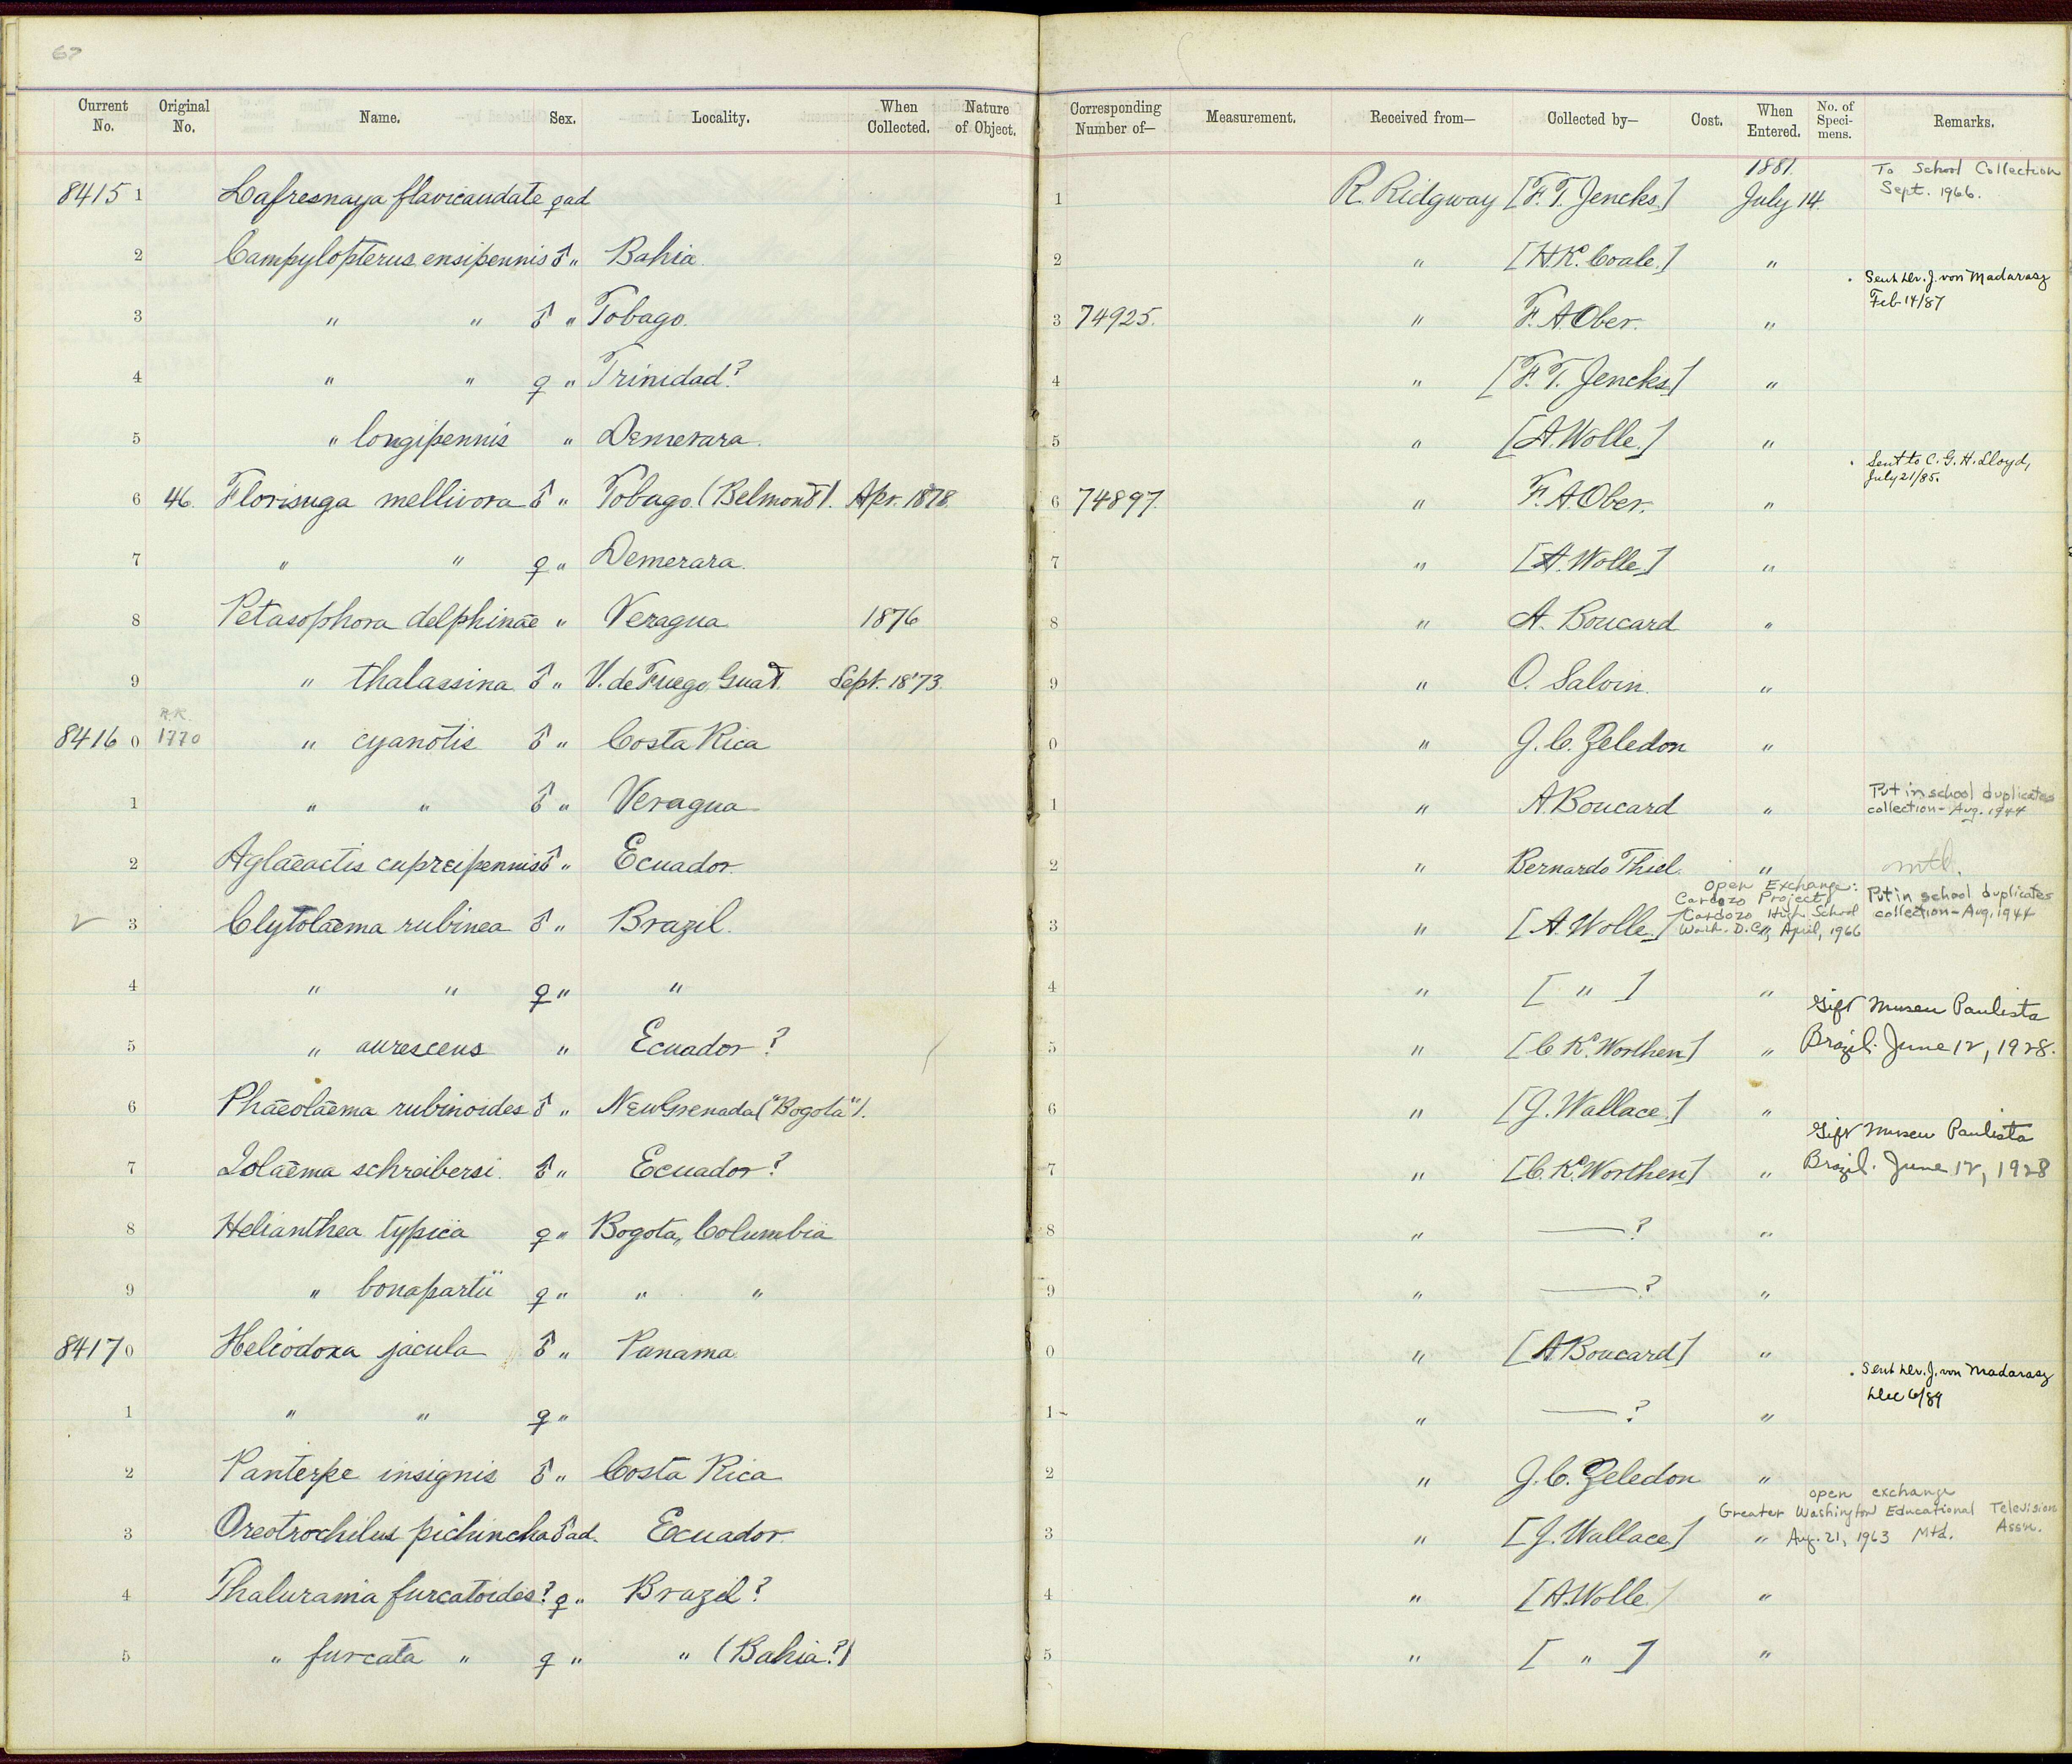 67
Current No. Original No. Name. Sex. Locality. When Collected. Nature of Object. Corresponding Number of— Measurement. Received from— Collected by— Cost. When Entered. No. of Specimens. Remarks.
8415 1 Lafresnaya flavicaudate ♀ ad 1 R. Ridgway [F. T. Jencks.] 1881. July 14. To School Collection Sept. 1966.
2 Campylopterus ensipennis ♂ " Bahia. 2 " [H.K. Coale.] "
3 " " ♂ " Tobago. 3 74925. " F. A Ober. " Sent Dr. J. von Madarasz Feb 14/87
4 " " ♀ " Trinidad? 4 " [F. T. Jencks] "
5 " longipennis " Demerara. 5 " [A. Wolle.] "
6 46. Florisuga mellivora ♂ " Tobago. (Belmont). Apr. 1878. 6 74897. " F. A. Ober. " Sent to C. G. H. Lloyd, July 21/85.
7 " " ♀ " Demerara. 7 " [A. Wolle] "
8 Petasophora delphinae " Veragua 1876 8 " A. Boucard "
9 " thalassina. ♂ " V. de Fuego, Guat. Sept. 1873. 9 " O. Salvin. "
8416 0 R.R. 1770 " cyanotis ♂ " Costa Rica 0 " J. C. Zeledon "
1 " " ♂ " Veragua 1 " A. Boucard " Put in school duplicates collection - Aug. 1944
2 Aglaeactis cupreipennis ♂ " Ecuador. 2 " Bernardo Thiel. " mtd.
3 Clytolaema rubinea ♂ " Brazil. 3 " [A. Wolle] " Open Exchange: Cardozo Project, Cardozo High School Wash. D.C., April, 1966 Put in school duplicates collection - Aug. 1944
4 " " ♀ " " 4 " [ " ] "
5 " aurescens " Ecuador? 5 " [C. K. Worthen] " Gift Museu Paulista Brazil. June 12, 1928.
6 Phaeolaema rubinoides ♂ " New Grenada ("Bogota"). 6 " [J. Wallace.] "
7 Iolaema schreibersi. ♂ " Ecuador? 7 " [C. K. Worthen] " Gift Museu Paulista Brazil. June 12, 1928
8 Helianthea typica ♀ " Bogota, Columbia 8 " —? "
9 " bonapartii ♀ " " " 9 " —? "
8417 0 Heliodoxa jacula ♂ " Panama. 0 " [A Boucard] "
1 " " ♀ " 1 " —? " Sent Dr. J. von Madarasz Dec 6/89
2 Panterpe insignis ♂ " Costa Rica 2 " J. C. Zeledon "
3 Oreotrochilus pichincha ♂ ad. Ecuador. 3 " [J. Wallace] " open exchange Greater Washington Educational Television Assn. Aug. 21, 1963 Mtd.
4 Thalurania furcatoides? ♀ " Brazil? 4 " [A. Wolle.] "
5 " furcata " ♀ " " (Bahia?) 5 " [ " ] "